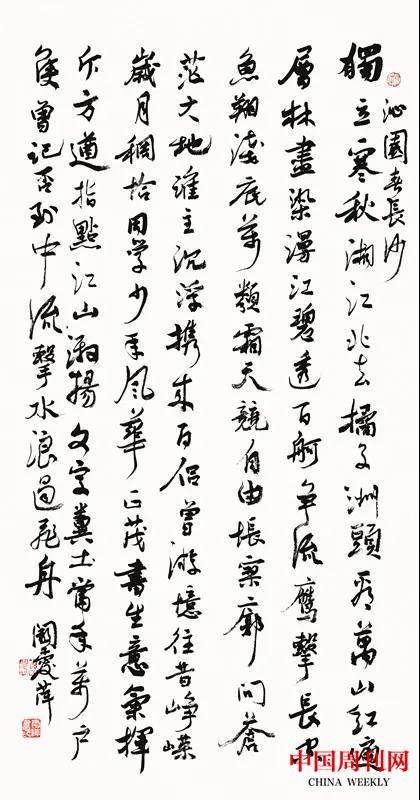 沁園春長沙
獨立寒秋湘江北去橘子洲頭看萬山紅遍
層林盡染漫江碧透百舸争流鷹擊長空
魚翔淺底萬類霜天競自由悵寥廓問蒼
茫大地誰主沉浮携來百侣曾游憶往昔崢嶸
歲月稠恰同學少年風華正茂書生意氣揮
斥方遒指點江山激揚文字糞土當年萬户
侯曾記否到中流擊水浪遏飛舟
中国周刊网
CHINA WEEKLY